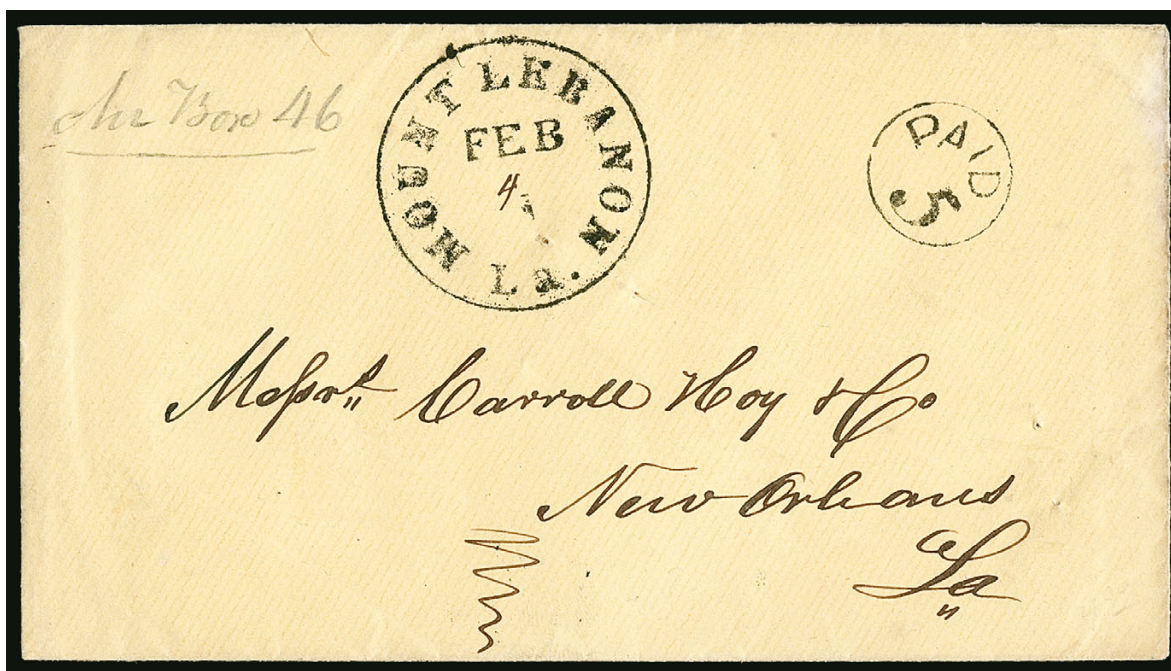 Box 46
MOUNT LEBANON La.
FEB
4
PAID
5
Messrs Carroll Hoy & Co
New Orleans
La